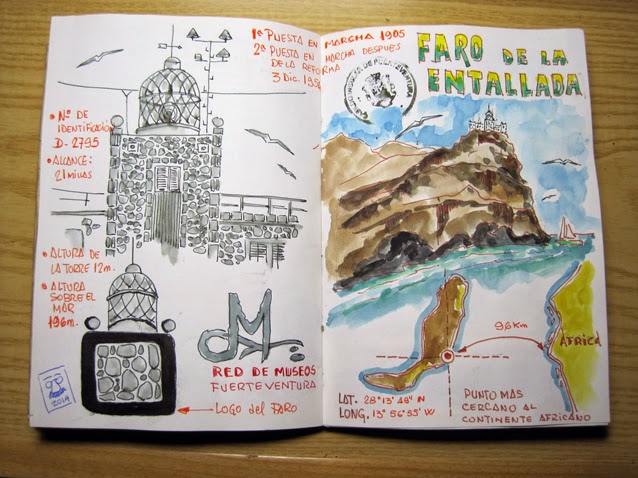 1ª PUESTA EN MARCHA 1905
2ª PUESTA EN MARCHA DESPUES
DE LA REFORMA
3 Dic. 195
• Nº DE
IDENTIFICACIÓN
D-2795
• ALCANCE:
21 millas
• ALTURA DE
LA TORRE 12m.
• ALTURA
SOBRE EL
MAR
196m.
2014
RED DE MUSEOS
FUERTEVENTURA
LOGO del FARO
FARO DE LA
ENTALLADA
96Km
ÁFRICA
LAT. 28º13'48" N
LONG. 13º56'55' W
PUNTO MAS
CERCANO AL
CONTINENTE AFRICANO